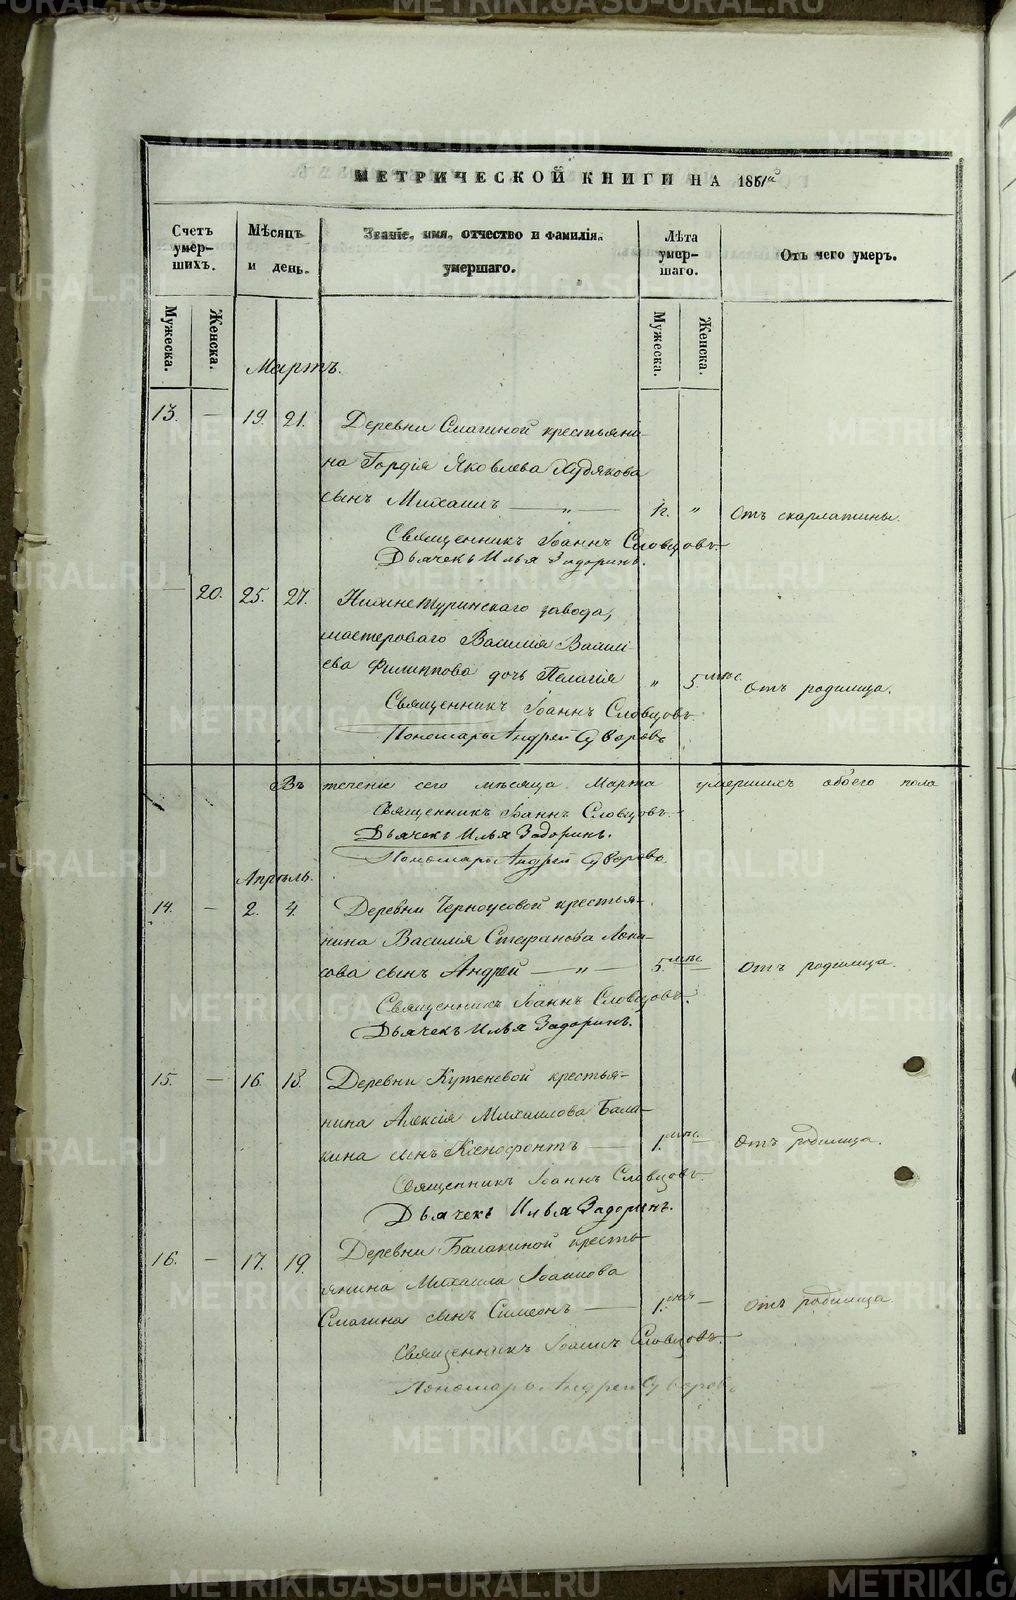 METRIKI.GASO-URAL.RU
МЕТРИЧЕСКОЙ КНИГИ НА 1861й
Счетъ умер-шихъ.
Мѣсяцъ и день.
Званіе, имя, отчество и фамилія умершаго.
Лѣта умер-шаго.
Отъ чего умеръ.
Мужеска. Женска. Мужеска. Женска.
Мартъ.
13. — 19. 21. Деревни Смагиной крестьяни-
на Гордія Яковлева Худякова
сынъ Михаилъ — „ — „ Отъ скарлатины.
Священникъ Іоаннъ Словцовъ.
Дьячекъ Илья Задоринъ.
— 20. 25. 27. Нижнетуринскаго завода,
мастероваго Василія Васильі-
ева Филиппова дочь Пелагія „ 5. мѣс. Отъ родимца.
Священникъ Іоаннъ Словцовъ
Пономарь Андрей Суворовъ
Въ теченіе сего мѣсяца Марта умершихъ обоего пола
Священникъ Іоаннъ Словцовъ.
Дьячекъ Илья Задоринъ.
Пономарь Андрей Суворовъ
Апрѣль.
14. — 2. 4. Деревни Черноусовой крестья-
нина Василія Стефанова
сынъ Андрей — „ — 5. мѣс. — Отъ родимца.
Священникъ Іоаннъ Словцовъ.
Дьячекъ Илья Задоринъ.
15. — 16. 18. Деревни крестья-
нина Алексія Михаилова Бала-
кина сынъ Ксенофонтъ 1. мѣс. — Отъ родимца.
Священникъ Іоаннъ Словцовъ.
Дьячекъ Илья Задоринъ.
16. — 17. 19. Деревни Балакиной кресть-
янина Михаила Іоаннова
Смагина сынъ Симеонъ — 1. дня — Отъ родимца.
Священникъ Іоаннъ Словцовъ.
Пономарь Андрей Суворовъ.